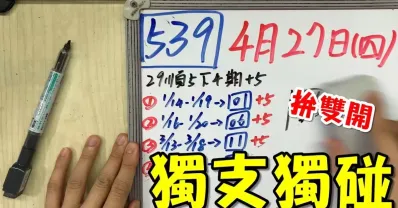 539
4月27日(四)
29順5下4期+5
① 1/14-1/19→01 +5
② 1/16-1/20→06 +5
③ 3/13-3/18→11 +5
拚雙開
獨支獨碰